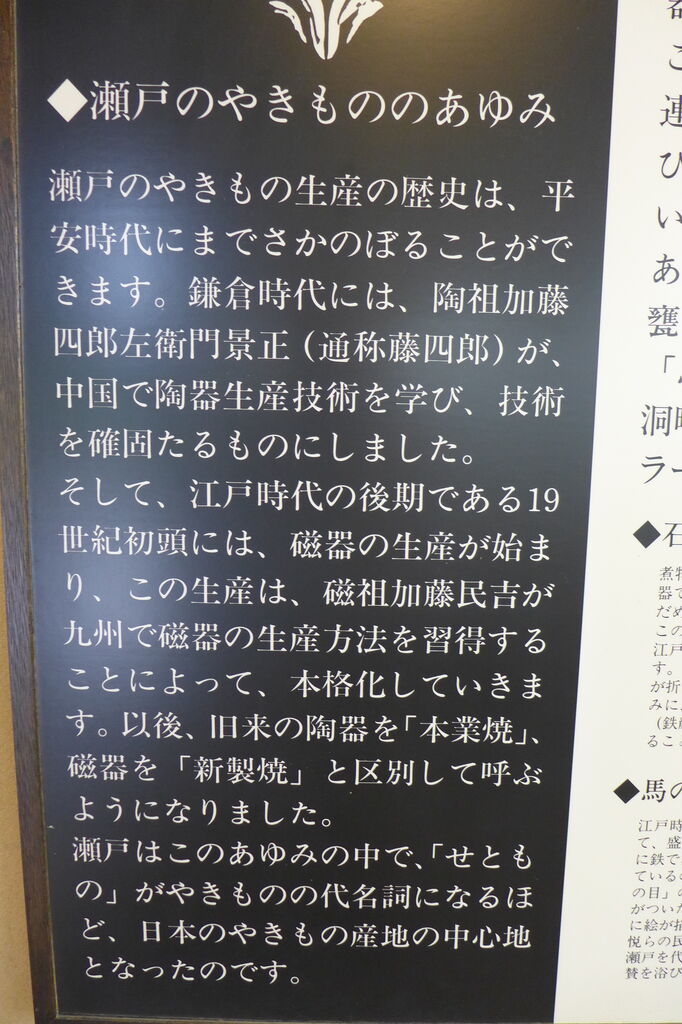 ◆瀬戸のやきもののあゆみ
瀬戸のやきもの生産の歴史は、平
安時代にまでさかのぼることがで
きます。鎌倉時代には、陶祖加藤
四郎左衛門景正(通称藤四郎)が、
中国で陶器生産技術を学び、技術
を確固たるものにしました。
そして、江戸時代の後期である19
世紀初頭には、磁器の生産が始ま
り、この生産は、磁祖加藤民吉が
九州で磁器の生産方法を習得する
ことによって、本格化していきま
す。以後、旧来の陶器を「本業焼」、
磁器を「新製焼」と区別して呼ぶ
ようになりました。
瀬戸はこのあゆみの中で、「せとも
の」がやきものの代名詞になるほ
ど、日本のやきもの産地の中心地
となったのです。
こ
連
び
い
あ
甕
洞町
ラー
◆石
煮物
器で
だめ
この
江戸
す。
が折
みに
(鉄
るこ
◆馬の
江戸時
て、盛
に鉄で
ている
の目」の
がついた
に絵が描
悦らの民
瀬戸を代
賛を浴び